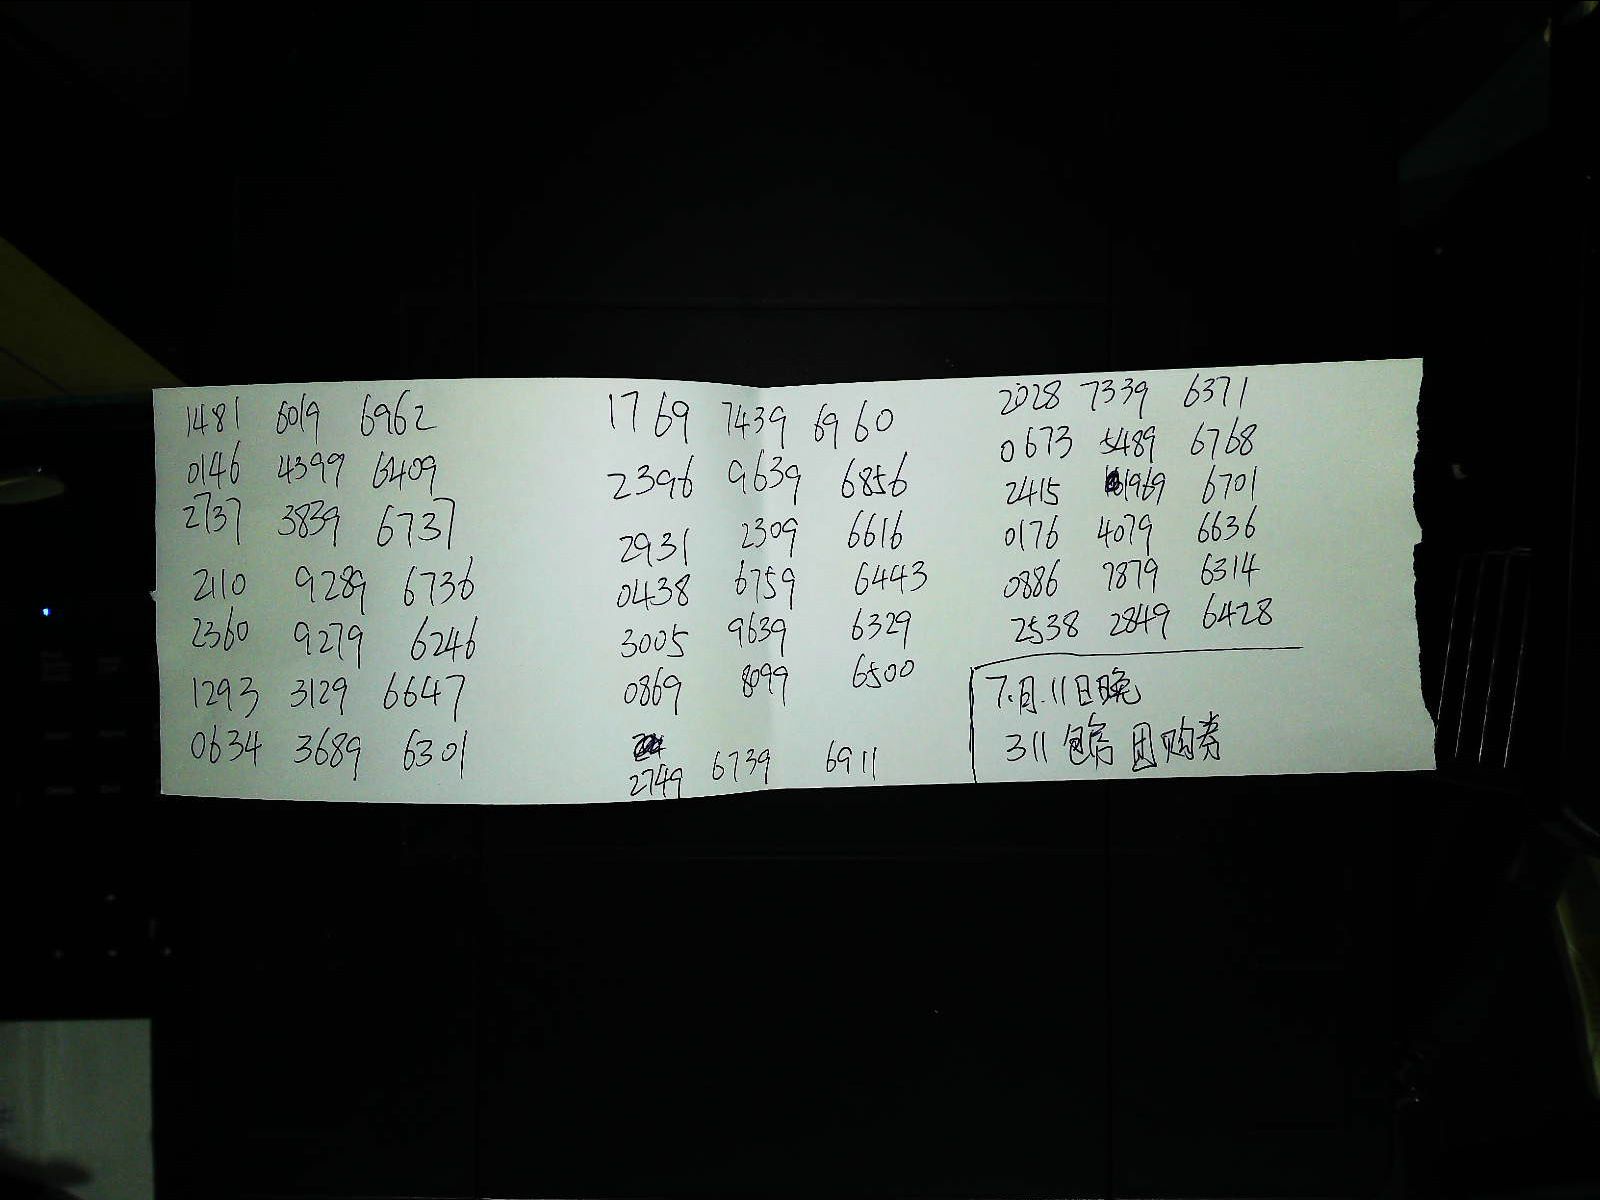 1481 6019 6962
0146 4399 6409
2737 3839 6737
2110 9289 6736
2360 9279 6246
1293 3129 6647
0634 3689 6301
1769 7439 6960
2396 9639 6856
2931 2309 6616
0438 6759 6443
3005 9639 6329
0869 8099 6500
2749 6739 6911
2028 7339 6371
0673 5489 6768
2415 1969 6701
0176 4079 6636
0886 7879 6314
2538 2849 6428
7.月.11日晚
311 包房 团购券